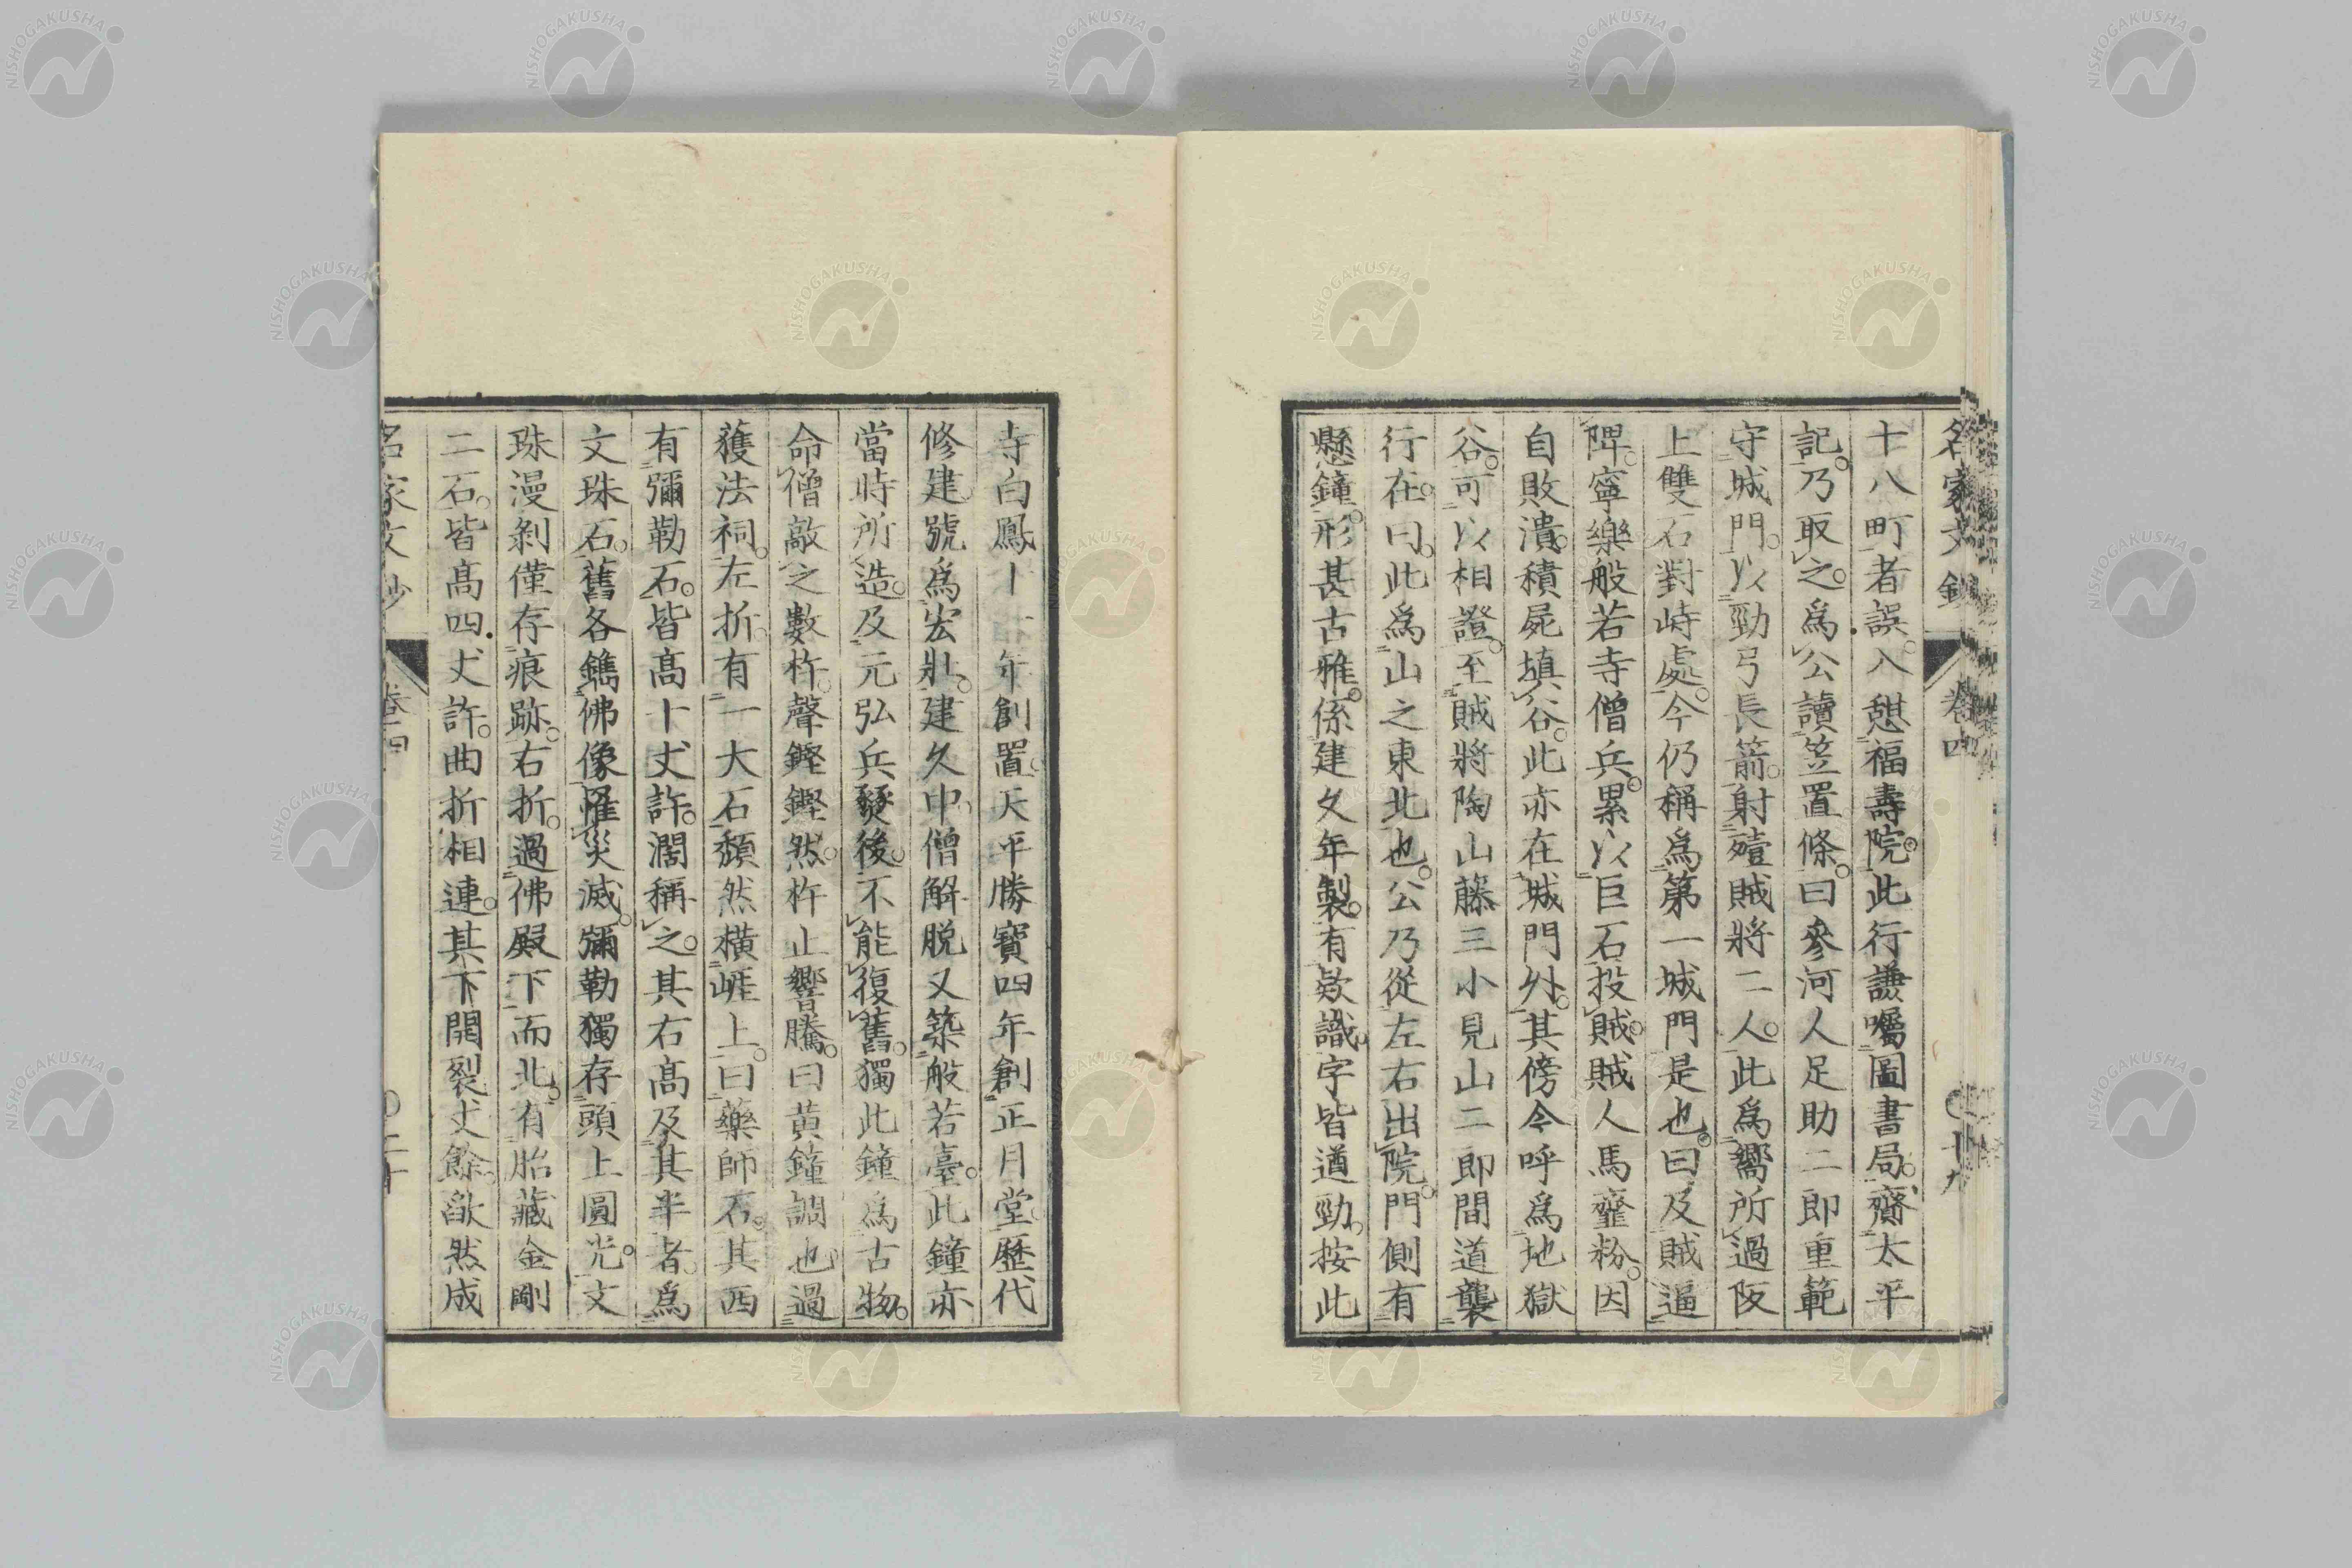 名家文鈔 卷四 十九
十八町者誤。入憩福壽院。此行謙囑圖書局。齎太平
記。乃取之。為公讀笠置條。曰參河人足助二郎重範
守城門。以勁弓長箭。射殪賊將二人。此為嚮所過阪
上雙石對峙處。今仍稱為第一城門是也。曰及賊逼
陴。寧樂般若寺僧兵。累以巨石投賊。賊人馬虀粉。因
自敗潰。積屍填谷。此亦在城門外。其傍今呼為地獄
谷。可以相證。至賊將陶山藤三小見山二郎間道襲
行在。曰。此為山之東北也。公乃從左右出院。門側有
懸鐘。形甚古雅。係建久年製。有欵識。字皆遒勁。按此
寺白鳳十
年創置。天平勝寶四年創正月堂。歷代
修建。號為宏壯。建久中。僧解脱又築般若臺。此鐘亦
當時所造。及元弘兵燹後。不能復舊。獨此鐘為古物。
命僧敲之數杵。聲鏗鏗然。杵止響騰。曰黃鐘調也。過
護法祠。左折。有一大石頽然橫崕上。曰藥師石。其西
有彌勒石。皆高十丈許。濶稱之。其右高及其半者。為
文珠石。舊各鐫佛像。罹災滅。彌勒獨存頭上圓光。文
珠漫剝僅存痕跡。右折。過佛殿下而北。有胎藏金剛
二石。皆高四丈許。曲折相連。其下開裂丈餘。歘然成
名家文鈔 卷四 二十